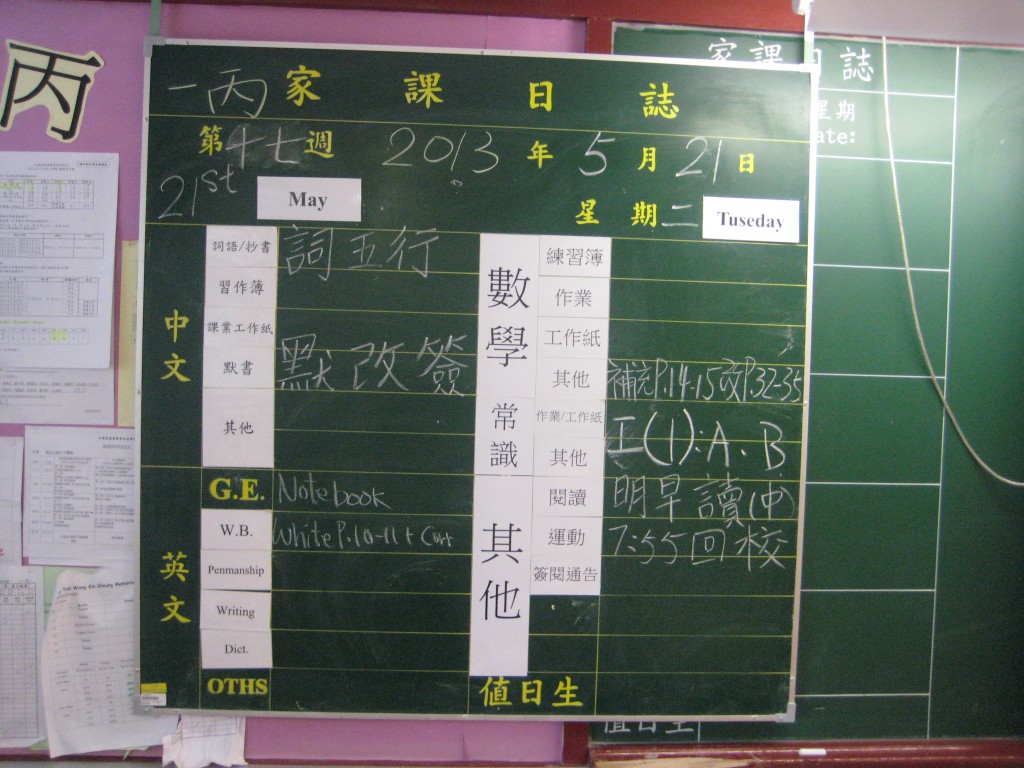 丙
一丙 家課日誌
第十七週 2013年5月21日
21st May 星期二 Tuseday
中文
詞語/抄書 詞五行
習作簿
課業工作紙
默書 默改簽
其他
英文
G.E. Notebook
W.B. White P.10-11 + Corr
Penmanship
Writing
Dict.
OTHS
數學
練習簿
作業
工作紙
其他 補充P.14-15改P.32-35
常識
作業/工作紙
其他 工(1):A.B
其他
閱讀 明早讀(中)
運動 7:55回校
簽閱通告
值日生
家課日誌
星期
ate:
值日生